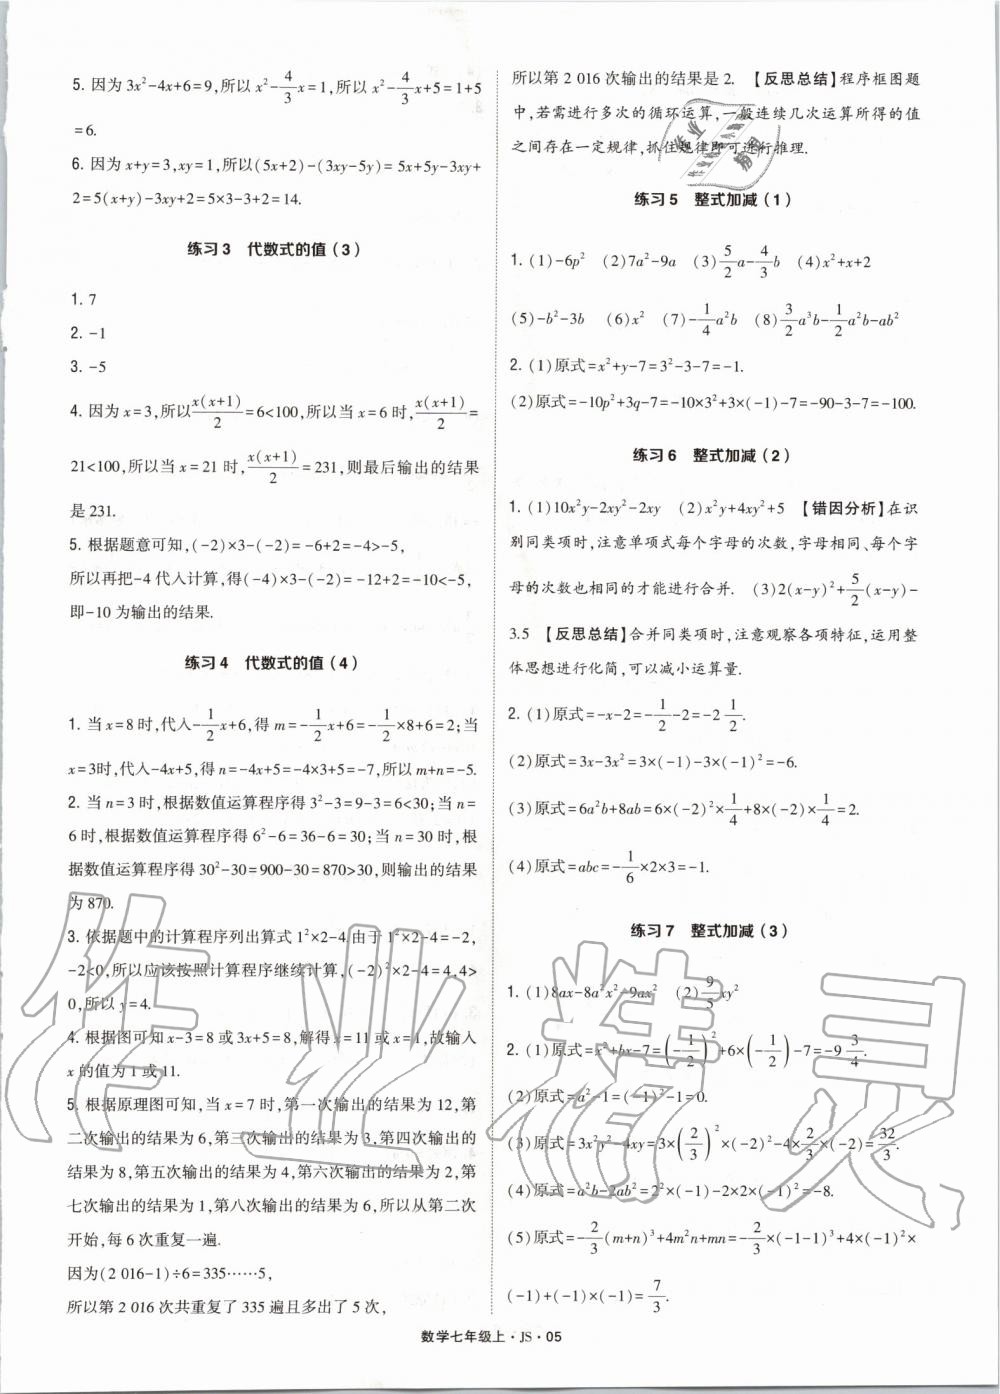 5. 因为 3x²-4x+6=9,所以 x²-4/3x=1,所以 x²-4/3x+5=1+5
=6.
6. 因为 x+y=3,xy=1,所以(5x+2)-(3xy-5y)=5x+5y-3xy+
2=5(x+y)-3xy+2=5×3-3+2=14.
练习3 代数式的值(3)
1. 7
2. -1
3. -5
4. 因为 x=3,所以x(x+1)/2=6<100,所以当 x=6 时,x(x+1)/2=
21<100,所以当 x=21 时,x(x+1)/2=231,则最后输出的结果
是 231.
5. 根据题意可知,(-2)×3-(-2)=-6+2=-4>-5,
所以再把-4 代入计算,得(-4)×3-(-2)=-12+2=-10<-5,
即-10 为输出的结果.
练习4 代数式的值(4)
1. 当 x=8 时,代入-1/2x+6,得 m=-1/2x+6=-1/2×8+6=2;当
x=3时,代入-4x+5,得 n=-4x+5=-4×3+5=-7,所以 m+n=-5.
2. 当 n=3 时,根据数值运算程序得 3²-3=9-3=6<30;当 n=
6 时,根据数值运算程序得 6²-6=36-6=30;当 n=30 时,根
据数值运算程序得 30²-30=900-30=870>30,则输出的结果
为 870.
3. 依据题中的计算程序列出算式 1²×2-4.由于 1²×2-4=-2,
-2<0,所以应该按照计算程序继续计算,(-2)²×2-4=4,4>
0,所以 y=4.
4. 根据图可知 x-3=8 或 3x+5=8,解得 x=11 或 x=1,故输入
x 的值为 1 或 11.
5. 根据原理图可知,当 x=7 时,第一次输出的结果为 12,第
二次输出的结果为 6,第三次输出的结果为 3,第四次输出的
结果为 8,第五次输出的结果为 4,第六次输出的结果为 2,第
七次输出的结果为 1,第八次输出的结果为 6,所以从第二次
开始,每 6 次重复一遍.
因为(2 016-1)÷6=335……5,
所以第 2 016 次共重复了 335 遍且多出了 5 次,
所以第 2 016 次输出的结果是 2. 【反思总结】程序框图题
中,若需进行多次的循环运算,一般连续几次运算所得的值
之间存在一定规律,抓住规律即可进行推理.
练习5 整式加减(1)
1. (1)-6p² (2)7a²-9a (3)5/2a-4/3b (4)x²+x+2
(5)-b²-3b (6)x² (7)-1/4a²b (8)3/2a³b-1/2a²b-ab²
2. (1)原式=x²+y-7=3²-3-7=-1.
(2)原式=-10p²+3q-7=-10×3²+3×(-1)-7=-90-3-7=-100.
练习6 整式加减(2)
1. (1)10x²y-2xy²-2xy (2)x²y+4xy²+5 【错因分析】在识
别同类项时,注意单项式每个字母的次数,字母相同、每个字
母的次数也相同的才能进行合并. (3)2(x-y)²+5/2(x-y)-
3.5 【反思总结】合并同类项时,注意观察各项特征,运用整
体思想进行化简,可以减小运算量.
2. (1)原式=-x-2=-1/2-2=-2 1/2.
(2)原式=3x-3x²=3×(-1)-3×(-1)²=-6.
(3)原式=6a²b+8ab=6×(-2)²×1/4+8×(-2)×1/4=2.
(4)原式=abc=-1/6×2×3=-1.
练习7 整式加减(3)
1. (1)8ax-8a²x²-9ax² (2)9/5xy²
2. (1)原式=x²+bx-7=(-1/2)²+6×(-1/2)-7=-9 3/4.
(2)原式=a²-1=(-1)²-1=0.
(3)原式=3x²y²-4xy=3×(2/3)²×(-2)²-4×2/3×(-2)=32/3.
(4)原式=a²b-2ab²=2²×(-1)-2×2×(-1)²=-8.
(5)原式=-2/3(m+n)³+4m²n+mn=-2/3×(-1-1)³+4×(-1)²×
(-1)+(-1)×(-1)=7/3.
数学七年级上·JS·05
作业精灵